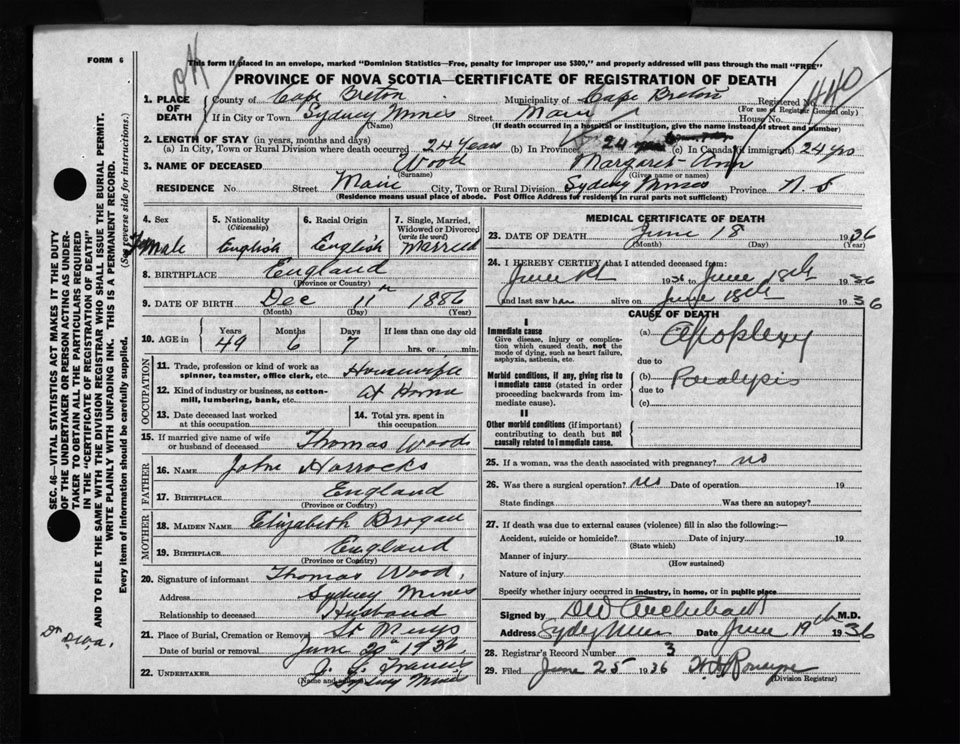 FORM 6
This form if placed in an envelope, marked "Dominion Statistics—Free, penalty for improper use $300," and properly addressed will pass through the mail "FREE"
PROVINCE OF NOVA SCOTIA—CERTIFICATE OF REGISTRATION OF DEATH
440
1. PLACE OF DEATH County of Cape Breton Municipality of Cape Breton Registered No.
(For use of Registrar General only)
If in City or Town Sydney Mines Street Main House No.
(Name) (If death occurred in a hospital or institution, give the name instead of street and number)
2. LENGTH OF STAY (in years, months and days)
(a) In City, Town or Rural Division where death occurred 24 years (b) In Province 24 yrs (c) In Canada (if immigrant) 24 yrs
3. NAME OF DECEASED Wood Margaret Ann
(Surname) (Given name or names)
RESIDENCE No. Street Main City, Town or Rural Division Sydney Mines Province N. S
(Residence means usual place of abode. Post Office Address for residents in rural parts not sufficient)
4. Sex Female
5. Nationality (Citizenship) English
6. Racial Origin English
7. Single, Married, Widowed or Divorced (write the word) Married
8. BIRTHPLACE England
(Province or Country)
9. DATE OF BIRTH Dec 11th 1886
(Month) (Day) (Year)
10. AGE in Years Months Days If less than one day old
49 6 7 hrs. or min.
OCCUPATION
11. Trade, profession or kind of work as spinner, teamster, office clerk, etc. Housewife
12. Kind of industry or business, as cotton-mill, lumbering, bank, etc. at Home
13. Date deceased last worked at this occupation
14. Total yrs. spent in this occupation
15. If married give name of wife or husband of deceased Thomas Wood
FATHER
16. NAME John Horrocks
17. BIRTHPLACE England
(Province or Country)
MOTHER
18. MAIDEN NAME Elizabeth Brogan
19. BIRTHPLACE England
(Province or Country)
20. Signature of informant Thomas Wood,
Address Sydney Mines
Relationship to deceased Husband
21. Place of Burial, Cremation or Removal St Marys
Date of burial or removal June 20th 1936,
22. UNDERTAKER J. J. Francis
(Name and address) Sydney Mines
MEDICAL CERTIFICATE OF DEATH
23. DATE OF DEATH June 18 1936
(Month) (Day) (Year)
24. I HEREBY CERTIFY that I attended deceased from:
June 1936 to June 18th 1936
and last saw her alive on June 18th 1936
CAUSE OF DEATH
I
Immediate cause
Give disease, injury or complication which caused death, not the mode of dying, such as heart failure, asphyxia, asthenia, etc.
(a) Apoplexy
due to
Morbid conditions, if any, giving rise to immediate cause (stated in order proceeding backwards from immediate cause).
(b) Paralysis
due to
(c)
II
Other morbid conditions (if important) contributing to death but not causally related to immediate cause.
25. If a woman, was the death associated with pregnancy? no
26. Was there a surgical operation? no Date of operation 19
State findings Was there an autopsy?
27. If death was due to external causes (violence) fill in also the following:—
Accident, suicide or homicide? Date of injury 19
(State which)
Manner of injury
(How sustained)
Nature of injury
Specify whether injury occurred in industry, in home, or in public place
Signed by DW Archibald M.D.
Address Sydney Mines Date June 19th 1936
28. Registrar's Record Number 3
29. Filed June 25 1936
(Division Registrar)
SEC. 46—VITAL STATISTICS ACT MAKES IT THE DUTY
OF THE UNDERTAKER OR PERSON ACTING AS UNDERTAKER TO OBTAIN ALL THE PARTICULARS REQUIRED
IN THE "CERTIFICATE OF REGISTRATION OF DEATH"
AND TO FILE THE SAME WITH THE DIVISION REGISTRAR WHO SHALL ISSUE THE BURIAL PERMIT.
WRITE PLAINLY WITH UNFADING INK. THIS IS A PERMANENT RECORD.
Every item of information should be carefully supplied. (See reverse side for instructions.)
Dr D.W.A.